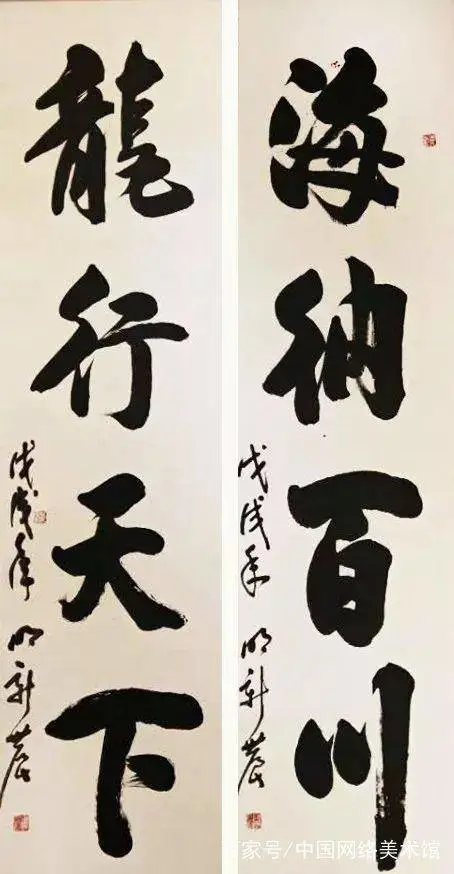 海纳百川
戊戌年 明新
龍行天下
戊戌年 明新
家号/中国网络美术馆